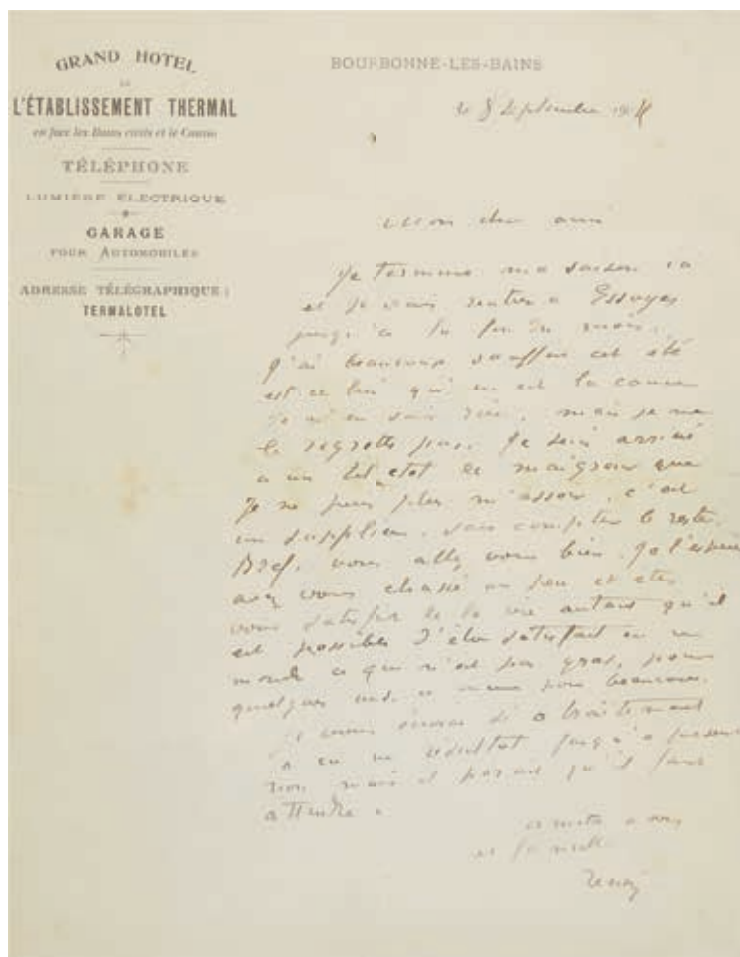 GRAND HOTEL
DE
L'ÉTABLISSEMENT THERMAL
en face les Bains civils et le Casino
TÉLÉPHONE
LUMIÈRE ÉLECTRIQUE
GARAGE
POUR AUTOMOBILES
ADRESSE TÉLÉGRAPHIQUE :
TERMALOTEL
BOURBONNE-LES-BAINS
8 Septembre
Mon cher ami
Je termine ma saison ici
et je vais rentrer a Essoyes
jusqu'a la fin du mois.
J'ai beaucoup souffert cet été
est ce lui qui en est la cause
je n'en sais rien, mais je ne
le regrette pas. Je suis arrivé
a un tel etat de maigreur que
Je ne puis plus m'assoir, c'est
un supplice, sans compter le reste.
Bref, vous allez vous bien, je l'espère
avez vous chassé un peu et etes
vous satisfait de la vie autant qu'il
est possible d'être satisfait en ce
monde ce qui n'est pas gras, pour
quelques uns, et meme pour beaucoup.
Je vous dirai si le traitement
a eu un résultat jusqu'a present
non mais il parait qu'il faut
attendre.
amitié a vous
et famille
Renoir